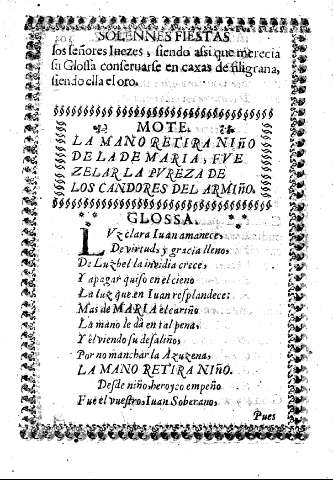 SOLENNES FIESTAS
sos señores Iuezes, siendo assi que merecia
su Glossa conseruarse en caxas de filigrana,
siendo ella el oro.
MOTE.
LA MANO RETIRA NIÑO
DE LA DE MARIA, FVE
ZELAR LA PVREZA DE
LOS CANDORES DEL ARMIÑO.
GLOSSA.
LVz clara Iuan amanece,
De virtud, y gracia lleno,
De Luzbel la inuidia crece,
Y apagar quiso en el cieno
La luz que en Iuan resplandece:
Mas de MARIA el cariño
La mano le dà en tal pena,
Y el viendo su desaliño,
Por no manchar la Azuzena,
LA MANO RETIRA NIÑO.
Desde niño, heroyco empeño
Fue el vuestro, Iuan Soberano,
Pues